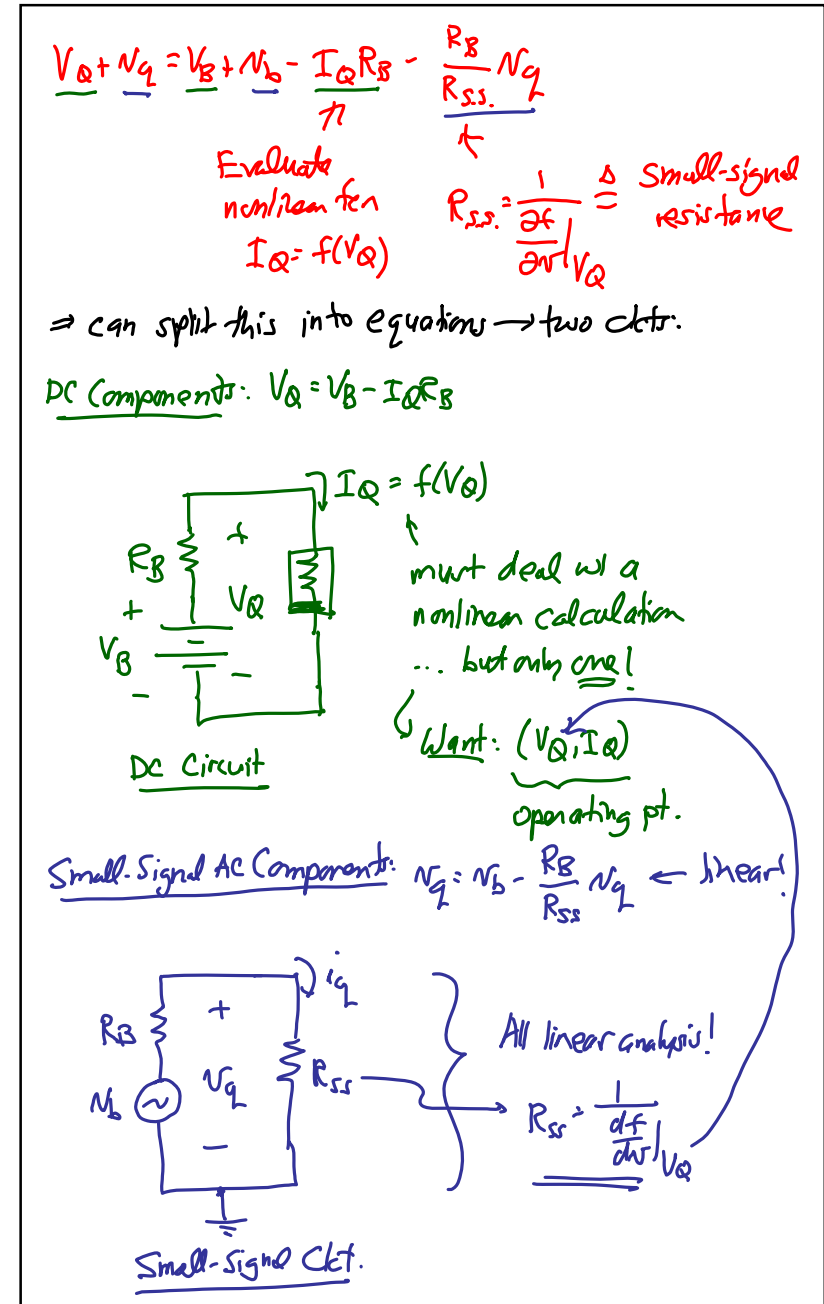 V_Q + v_q = V_B + v_b - I_Q R_B - R_B/R_s.s. v_q
Evaluate
nonlinear fcn
I_Q = f(V_Q)
R_s.s. = 1/(∂f/∂v)|V_Q ≜ Small-signal
resistance
⇒ can split this into equations → two ckts.
DC Components: V_Q = V_B - I_Q R_B
I_Q = f(V_Q)
R_B
+
V_Q
-
+
V_B
-
must deal w/ a
nonlinear calculation
... but only one!
Want: (V_Q, I_Q)
operating pt.
DC Circuit
Small-Signal AC Components: v_q = v_b - R_B/R_ss v_q ← linear!
i_q
R_B
+
v_q
-
R_ss
v_b
All linear analysis!
R_ss = 1/(df/dv)|V_Q
Small-Signal Ckt.